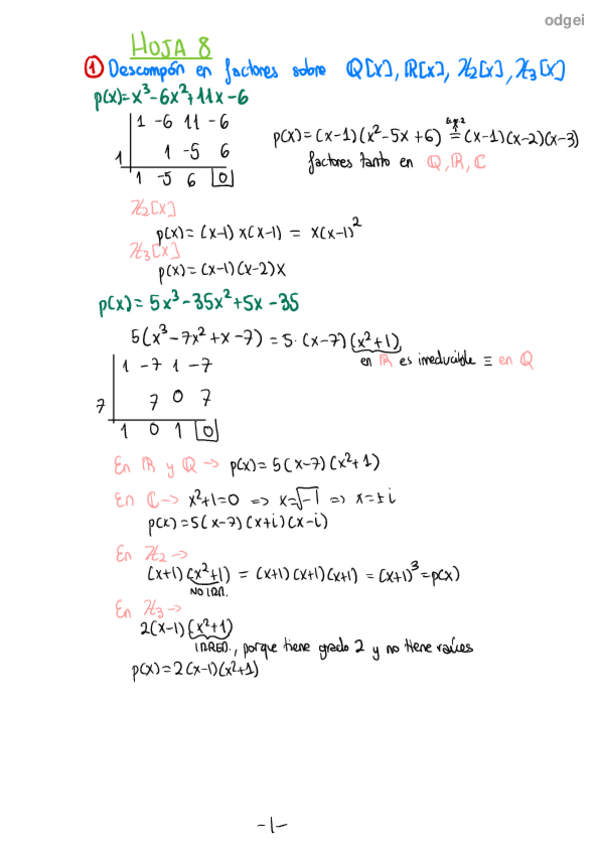 odgei
HOJA 8
① Descompón en factores sobre Q[x], ℝ[x], ℤ2[x], ℤ3[x]
p(x)=x³-6x²+11x-6
1 -6 11 -6
1 1 -5 6
1 -5 6 0
p(x)=(x-1)(x²-5x+6) = (x-1)(x-2)(x-3)
factores tanto en Q, ℝ, ℂ
ℤ2[x]
p(x)=(x-1)x(x-1) = x(x-1)²
ℤ3[x]
p(x)=(x-1)(x-2)x
p(x)= 5x³-35x²+5x-35
5(x³-7x²+x-7) = 5·(x-7)(x²+1)
en ℝ es irreducible ≡ en Q
1 -7 1 -7
7 7 0 7
1 0 1 0
En ℝ y Q → p(x)=5(x-7)(x²+1)
En ℂ → x²+1=0 => x=√-1 => x=±i
p(x)=5(x-7)(x+i)(x-i)
En ℤ2 →
(x+1)(x²+1) = (x+1)(x+1)(x+1) = (x+1)³=p(x)
NO IRR.
En ℤ3 →
2(x-1)(x²+1)
IRRED., porque tiene grado 2 y no tiene raíces
p(x)=2(x-1)(x²+1)
-1-